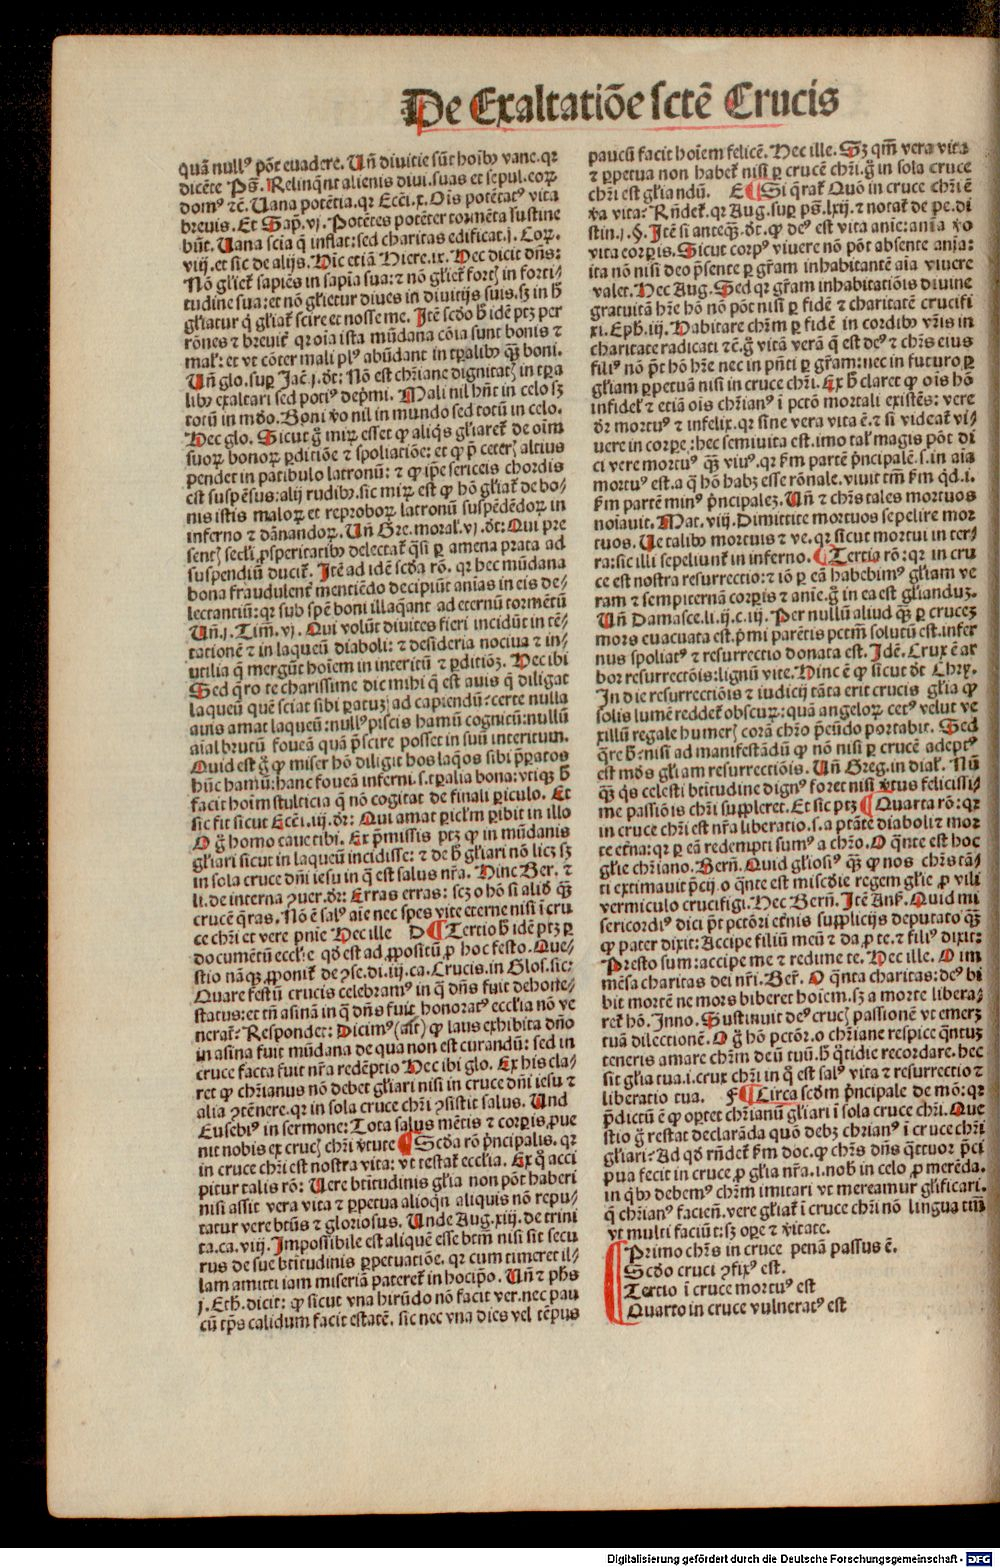 De Exaltatiõe sctẽ Crucis
quã nullꝰ põt euadere. Uñ diuitie sũt hoĩbꝫ vane. qꝛ
dicẽte Pš. Relinqũt alienis diui. suas et sepul. eoꝝ
domꝰ ⁊c̃. Uana potẽtia. qꝛ Ecc̃i. x. Oĩs potẽtatꝰ vita
breuis. Et Sap̃. vj. Potẽtes potẽter tormẽta sustine
bũt. Uana scĩa q̃ inflat: sed charitas edificat. j. Coꝝ.
viij. et sic de alijs. Hĩc etiã Hiere. ix. Hec dicit dñs:
Nõ gl̃iet̃ sapiẽs in sapiẽtia sua: ⁊ nõ gl̃iet̃ fortꝭ in forti-
tudine sua: et nõ gl̃ietur diues in diuitijs suis. sꝫ in h̃
gl̃iatur q̇ gl̃iat̃ scire et nosse me. Itẽ scd̃o h̃ idẽ ptꝫ per
rõnes ⁊ breuit̃ qꝛ oĩa ista mũdana cõia sunt bonis ⁊
mal̃: et vt cõter mali plꝰ abũdant in tp̃alibꝫ q̃ꝫ boni.
Uñ glo. sup̱ Jac̃. j. d̃t: Nõ est chr̃iane dignitatꝭ in tp̃a
libꝫ exaltari sed potiꝰ dep̃mi. Mali nil hñt in celo sꝫ
totũ in mũdo. Boni ṽo nil in mundo sed totũ in celo.
Hec glo. Sicut g̃ miꝝ esset ꝙ aliq̃s gl̃iaret̃ de oĩm
suoꝝ bonoꝝ ꝑditiõe ⁊ spoliatiõe: et ꝙ p̃ ceterꝭ altius
pendet in patibulo latronũ: ⁊ ꝙ ip̃e sericeis chordis
est suspẽsus: alij rudibꝫ. sic miꝝ est ꝙ hõ gl̃iat̃ de bo-
nis istis maloꝝ et reproboꝝ latronũ suspẽdẽdoꝝ in
inferno ⁊ dãnandoꝝ. Uñ Gre. moral̃. vj. d̃t: Qui pre
sentꝭ secl̃i ꝓsperitatibꝫ delectat̃ q̃si ꝑ amena prata ad
suspendiũ ducit̃. Itẽ ad idẽ scd̃a rõ. qꝛ hec mũdana
bona fraudulent̃ mentiẽdo decipiũt anĩas in eis de-
lectantiũ: qꝛ sub spẽ boni illaq̃ant ad eternũ tormẽtũ
Uñ. j. Tim̃. vj. Qui volũt diuites fieri incidũt in tẽ-
tationẽ ⁊ in laqueũ diaboli: ⁊ desideria nociua ⁊ in-
utilia q̃ mergũt hoĩem in interitũ ⁊ ꝑditiõꝫ. Hec ibi
Sed q̃ro te charissime dic mihi q̃ est auis q̃ diligat
laqueũ quẽ sciat sibi ꝑatuꝫ ad capiendũ: certe nulla
auis amat laqueũ: nullꝰ piscis hamũ cognitũ: nullũ
aĩal brutũ foueã quã p̃scire posset in suũ interitum.
Quid est g̃ ꝙ miser hõ diligit hos laq̃os sibi p̃ꝑatos
hũc hamũ: hanc foueã inferni. s. tp̱ralia bona: vtiqꝫ h̃
facit hoĩm stulticia q̃ nõ cogitat de finali ꝑiculo. Et
sic fit sicut Ecc̃i. iij. d̃r: Qui amat ꝑicl̃m ꝑibit in illo
O g̃ homo caue tibi. Ex p̃missis ptꝫ ꝙ in mũdanis
gl̃iari sicut in laqueũ incidisse: ⁊ de h̃ gl̃iari nõ licꝫ sꝫ
in sola cruce dñi iesu in q̃ est salus nr̃a. Hinc Ber. ⁊
li. de interna ꝯuer. d̃r: Erras erras: scꝫ o hõ si aliđ q̃ꝫ
crucẽ q̃ras. Nõ ẽ salꝰ aĩe nec spes vite eterne nisi ĩ cru
ce chr̃i et vere pnĩe Hec ille D ¶ Tertio h̃ idẽ ptꝫ ꝑ
documẽtũ eccl̃ie qđ est ad ꝓpositũ ꝓ hoc festo. Que-
stio nãqꝫ ꝓponit̃ de ꝯse. di. iij. ca. Crucis. in Glos. sic:
Quare festũ crucis celebramꝰ in q̃ dñs fuit dehone-
status: et tñ asinã in q̃ dñs fuit honoratꝰ eccl̃ia nõ ve
nerat̃: Respondet: Dicimꝰ (ait) ꝙ laus exhibita dño
in asina fuit mũdana de qua non est curandũ: sed in
cruce facta fuit nr̃a redẽptio Hec ibi glo. Ex his cla-
ret ꝙ chr̃ianus nõ debet gl̃iari nisi in cruce dñi iesu ⁊
alia ꝯtẽnere. qꝛ in sola cruce chr̃i ꝯsistit salus. Und
Eusebiꝰ in sermone: Tota salus mẽtis ⁊ corꝑis. ꝓue
nit nobis ex crucꝭ chr̃i v̓tute ¶ Scd̃a rõ p̃ncipalis. qꝛ
in cruce chr̃i est nostra vita: vt testat̃ eccl̃ia. Ex q̃ acci
pitur talis rõ: Uere btĩtudinis gl̃ia non põt haberi
nisi assit vera vita ⁊ ꝑpetua alioq̃n aliquis nõ repu-
tatur vere btũs ⁊ gloriosus. Unde Aug. xiij. de trini
ta. ca. viij. Impossibile est aliquẽ esse btm̃ nisi sit secu
rus de sue btĩtudinis ꝑpetuatiõe. qꝛ cum timeret il-
lam amitti iam miseriã pateret̃ in hoc ip̃o. Uñ ⁊ ph̃s
j. Eth. dicit: ꝙ sicut vna hirũdo nõ facit ver. nec pau
cũ tp̃s calidum facit estatẽ. sic nec vna dies vel tẽpus
paucũ facit hoĩem felicẽ. Hec ille. Sꝫ qm̃ vera vita
⁊ ꝑpetua non habet̃ nisi ꝑ crucẽ chr̃i. g̃ in sola cruce
chr̃i est gl̃iandũ. E ¶ Si q̃rat̃ Quõ in cruce chr̃i ẽ
v̓a vita: Rñdet̃. qꝛ Aug. suꝑ pš. lxij. ⁊ notat̃ de pe. di
stin. j. §. Itẽ si anteqꝫ. d̃t. ꝙ deꝰ est vita anĩe: anĩa ṽo
vita corꝑis. Sicut corpꝰ viuere nõ põt absente anĩa:
ita nõ nisi deo p̃sente ꝑ gr̃am inhabitantẽ aĩa viuere
valet. Hec Aug. Sed qꝛ gr̃am inhabitatiõis diuine
gratuitã hr̃e hõ nõ põt nisi ꝑ fidẽ ⁊ charitatẽ crucifi
xi. Eph. iij. Habitare chr̃m ꝑ fidẽ in cordibꝫ vr̃is in
charitate radicati ⁊c̃. g̃ vitã verã q̃ est deꝰ ⁊ chr̃s eius
filiꝰ nõ p̃t hõ hr̃e nec in pñti ꝑ gr̃am: nec in futuro ꝑ
gl̃iam ꝑpetuã nisi in cruce chr̃i. Ex h̃ claret ꝙ oĩs hõ
infidel̃ ⁊ etiã oĩs chr̃ianꝰ ĩ pctõ mortali existẽs: vere
d̃r mortuꝰ ⁊ infelix. qꝛ sine vera vita ẽ. ⁊ si videat̃ vi-
uere in corꝑe: hec semiuita est. imo tal̃ magis põt di
ci vere mortuꝰ q̃ꝫ viuꝰ. qꝛ ẜm partẽ p̃ncipalẽ. s. in aĩa
mortuꝰ est. a q̃ hõ habꝫ esse rõnale. viuit tm̃ ẜm q̃d. i.
ẜm partẽ minꝰ p̃ncipaleꝫ. Uñ ⁊ chr̃s tales mortuos
noĩauit. Mat. viij. Dimittite mortuos sepelire mor
tuos. Ue talibꝫ mortuis ⁊ ve. qꝛ sicut mortui in ter-
ra: sic illi sepeliunt̃ in inferno. ¶ Tertia rõ: qꝛ in cru
ce est nostra resurrectio: ⁊ iõ ꝑ eã habebimꝰ gl̃iam ve
ram ⁊ sempiternã corꝑis ⁊ anĩe. g̃ in ea est gl̃ianduꝫ.
Uñ Damasce. li. ij. c. iij. Per nullũ aliud q̃ꝫ ꝑ cruceꝫ
mors euacuata est. p̃mi parẽtis pctm̃ solutũ est. infer
nus spoliatꝰ ⁊ resurrectio donata est. Idẽ. Crux ẽ ar
bor resurrectõis: lignũ vite. Hinc ẽ ꝙ sicut d̃t Chrẏ.
In die resurrectiõis ⁊ iudicij tãta erit crucis gl̃ia ꝙ
solis lumẽ reddet̃ obscuꝝ: quã angeloꝝ cetꝰ velut ve
xillũ regale humerꝭ corã chr̃o p̃eũdo portabit. Sed
q̃re h̃: nisi ad manifestãdũ ꝙ nõ nisi ꝑ crucẽ adeptꝰ
est mõs gl̃iam resurrectiõis. Uñ Greg. in dial̃. Nũ
q̃ꝫ q̃s celesti btĩtudine dignꝰ foret nisi v̓tus felicissi-
me passiõis chr̃i suppleret. Et sic ptꝫ ¶ Quarta rõ: qꝛ
in cruce chr̃i est nr̃a liberatio. s. a ptãte diaboli ⁊ mor
te et̃na: qꝛ ꝑ eã redempti sumꝰ a chr̃o. O q̃nte est hoc
gl̃ie chr̃iano. Berñ. Quid gl̃iosiꝰ q̃ꝫ ꝙ nos chr̃s tã-
ti extimauit p̃cij. o q̃nte est miscd̃ie regem gl̃ie ꝓ vili
vermiculo crucifigi. Hec Berñ. Itẽ Anf̃. Quid mi
sericordiꝰ dici p̃t pctõri et̃nis supplicijs deputato q̃ꝫ
ꝙ pater dixit: Accipe filiũ meũ ⁊ da ꝓ te. ⁊ filiꝰ dixit:
Presto sum: accipe me ⁊ redime te. Hec ille. O im
mẽsa charitas dei nr̃i. Ber̃. O q̃nta charitas: deꝰ bi
bit mortẽ ne mors biberet hoĩem. sꝫ a morte libera-
ret̃ hõ. Inno. Sustinuit deꝰ crucꝭ passionẽ vt emerꝫ
tuã dilectionẽ. O g̃ hõ pctõr. o chr̃iane respice q̃ntuꝫ
teneris amare chr̃m deũ tuũ. h̃ q̃tidie recordare. hec
sit gl̃ia tua. i. crux chr̃i in q̃ est salꝰ vita ⁊ resurrectio ⁊
liberatio tua. F ¶ Circa scd̃m p̃ncipale de mõ: qꝛ
p̃dictũ ẽ ꝙ oꝑtet chr̃ianũ gl̃iari ĩ sola cruce chr̃i. Que
stio g̃ restat declarãda quõ debꝫ chr̃ianꝰ ĩ cruce chr̃i
gl̃iari: Ad qđ rñdet̃ ẜm doc. ꝙ chr̃s dñs q̃ttuor p̃ci
pua fecit in cruce ꝓ gl̃ia nr̃a. i. nob̃ in celo ꝓmerẽda.
in q̃bꝫ debemꝰ chr̃m imitari vt mereamur gl̃ificari.
q̃ chr̃ianꝰ facieñ. vere gl̃iat̃ ĩ cruce chr̃i nõ lingua tm̃
vt multi faciũt: sꝫ oꝑe ⁊ v̓itate.
Primo chr̃s in cruce penã passus ẽ.
Scd̃o cruci ꝯfixꝰ est.
Tertio ĩ cruce mortuꝰ est
Quarto in cruce vulneratꝰ est
Digitalisierung gefördert durch die Deutsche Forschungsgemeinschaft - DFG